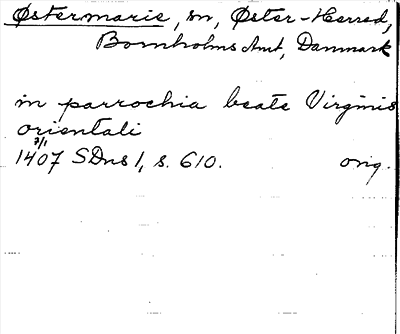 Østermarie, sn, Øster-Herred,
Bornholms Amt, Danmark
in parrochia beate Virginis
orientali
7/1
1407 SDns 1, s. 610. orig.